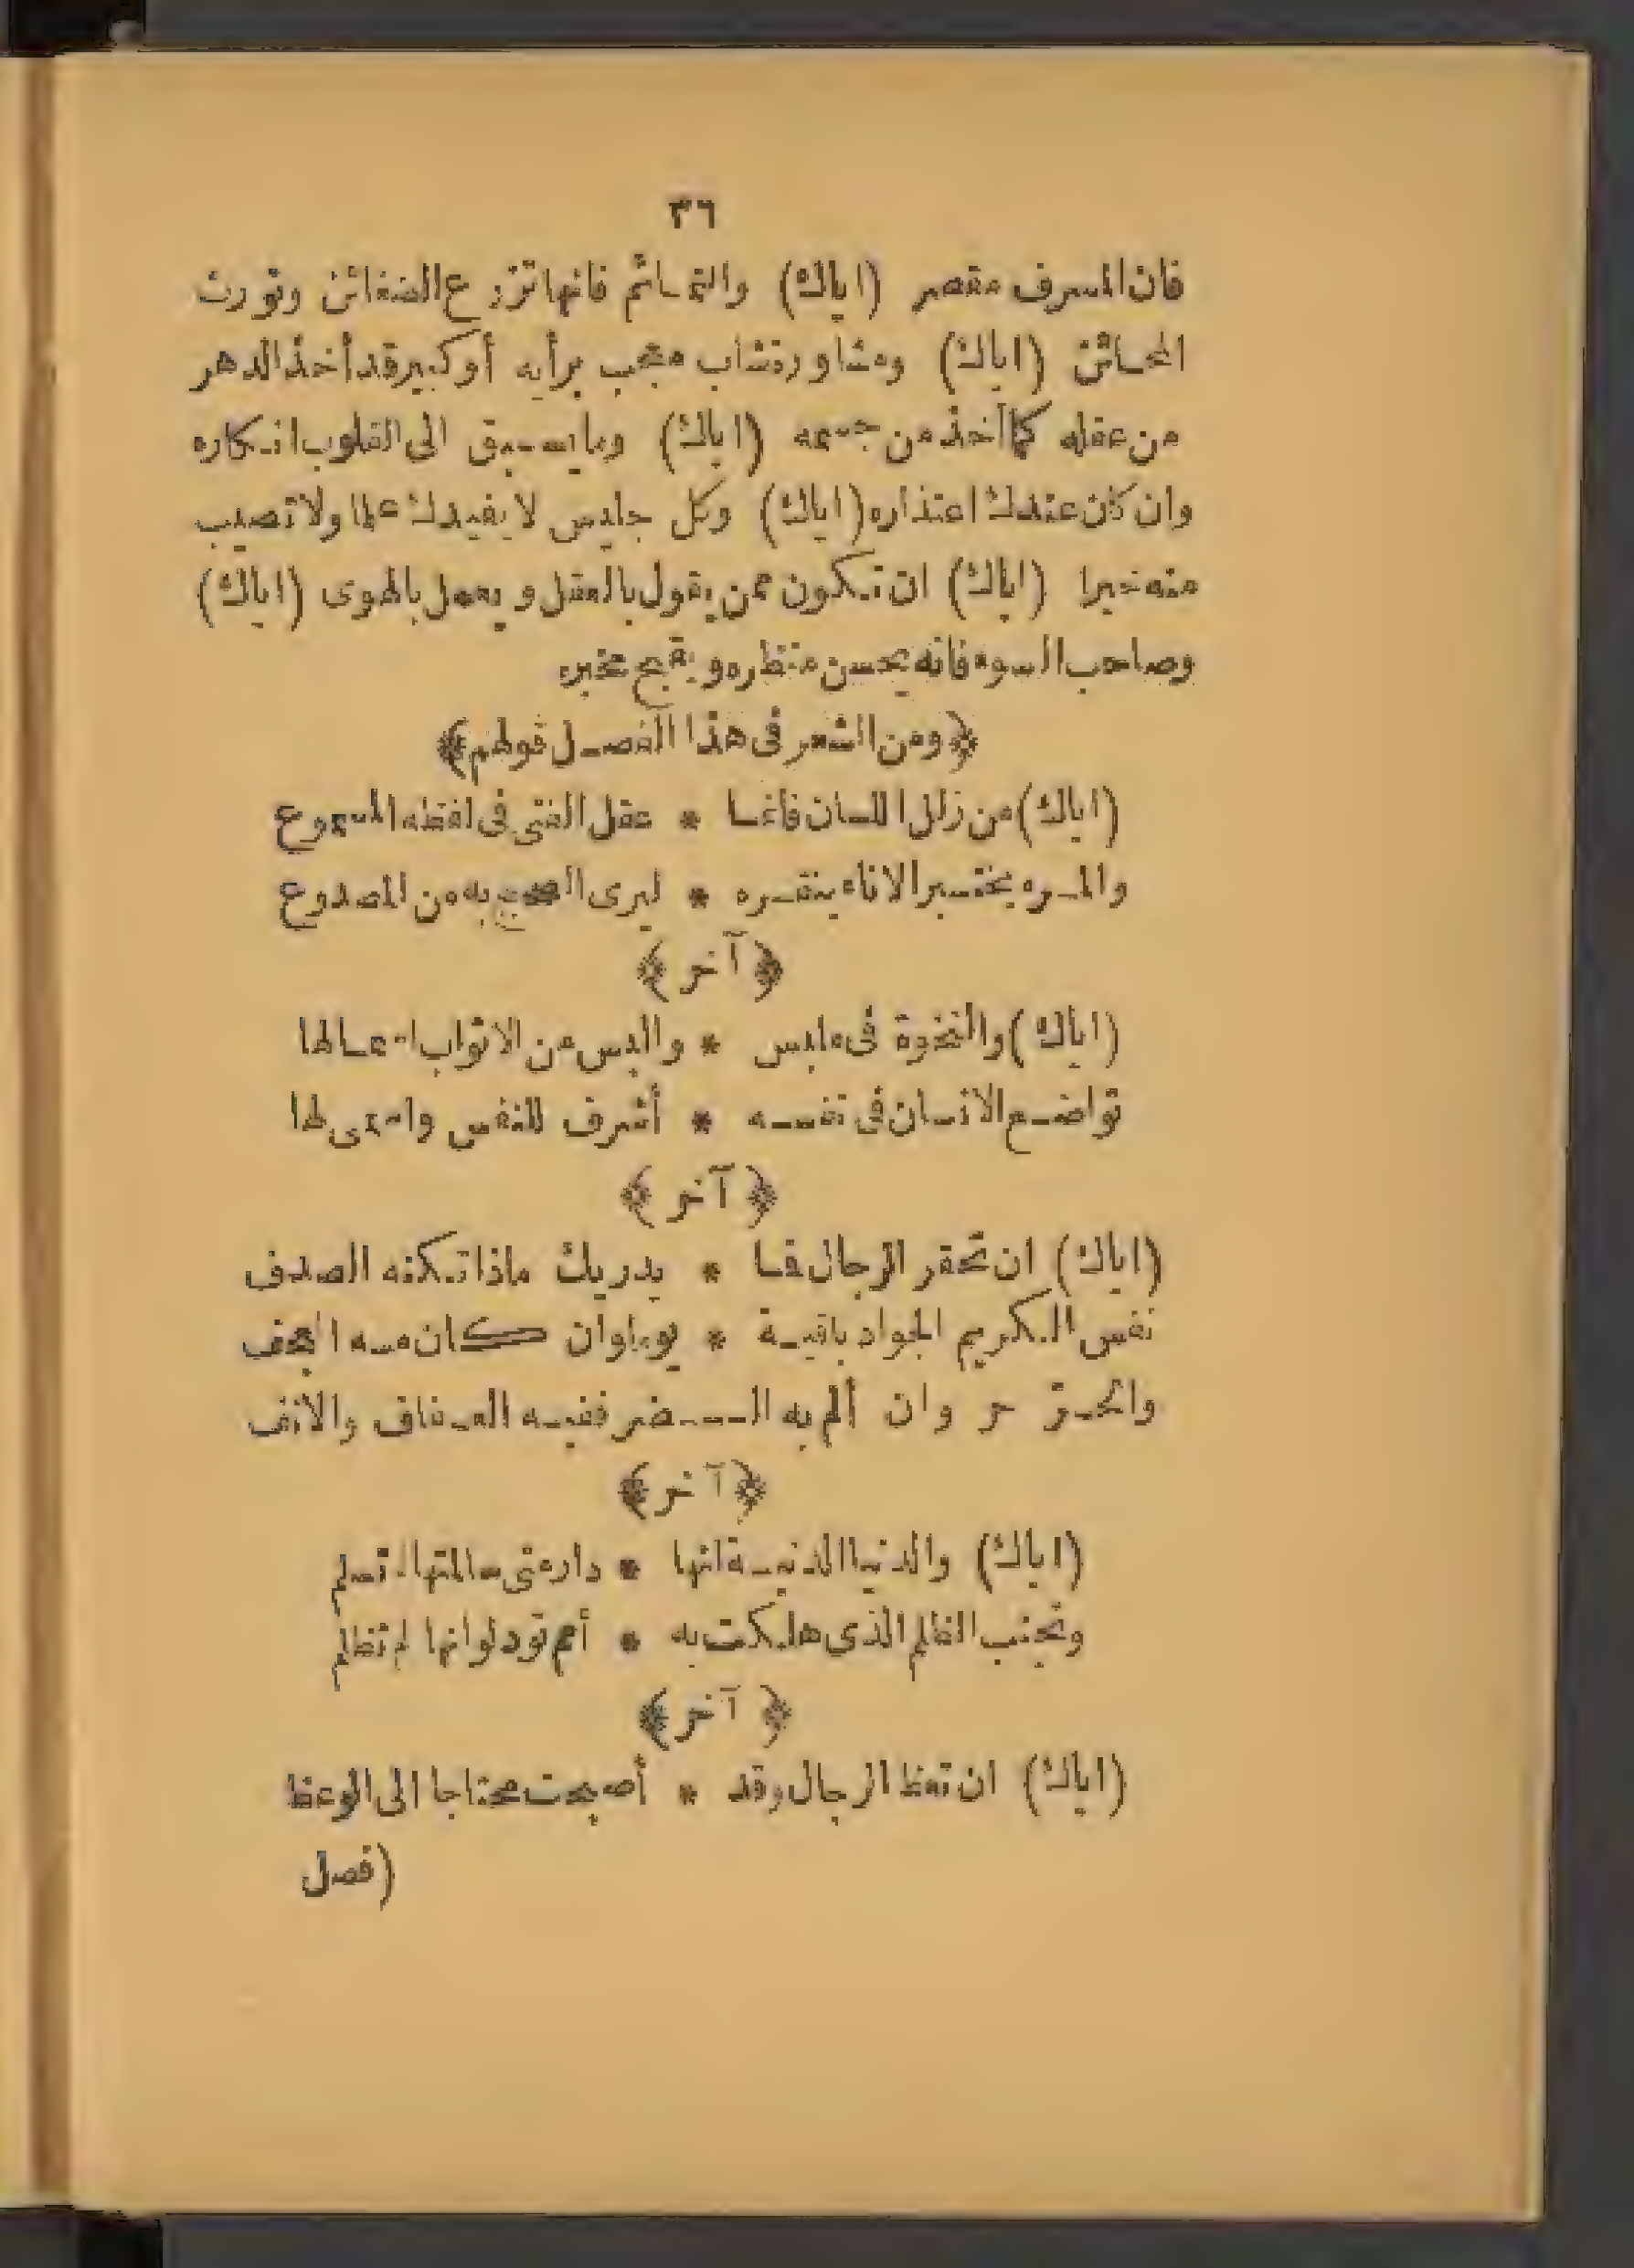 ٣٦
فان المسرف مقصر (اياك) والنمائم فانها تزرع الضغائن وتورث
المحائن (اياك) ومشاورة شاب معجب برأيه أو كبير قد أخذ الدهر
من عقله كما أخذ من جسمه (اياك) وما يسبق الى القلوب انكاره
وان كان عندك اعتذاره (اياك) وكل جليس لا يفيدك علما ولا تصيب
منه خيرا (اياك) ان تكون ممن يقول بالعقل ويعمل بالهوى (اياك)
وصاحب السوء فانه يحسن منظره ويقبح مخبره
﴿ومن الشعر فى هذا الفصل قولهم﴾
(اياك) من زلل اللسان فانما * عقل الفتى فى لفظه المسموع
والمرء يختبر الاناء بنقره * ليرى الصحيح به من المصدوع
﴿آخر﴾
(اياك) والنخوة فى ملبس * والبس من الاثواب اسمالها
تواضع الانسان فى نفسه * أشرف للنفس واسمى لها
﴿آخر﴾
(اياك) ان تحقر الرجال فما * يدريك ماذا تكنه الصدف
نفس الكريم الجواد باقية * يوما وان كان مسه العجف
والحر حر وان ألم به الضر ففيه العفاف والانف
﴿آخر﴾
(اياك) والدنيا الدنية انها * دار متى سالمتها لم تسلم
وتجنب الظلم الذى هلكت به * أمم تود لوانها لم تظلم
﴿آخر﴾
(اياك) ان تعظ الرجال وقد * أصبحت محتاجا الى الوعظ
(فصل